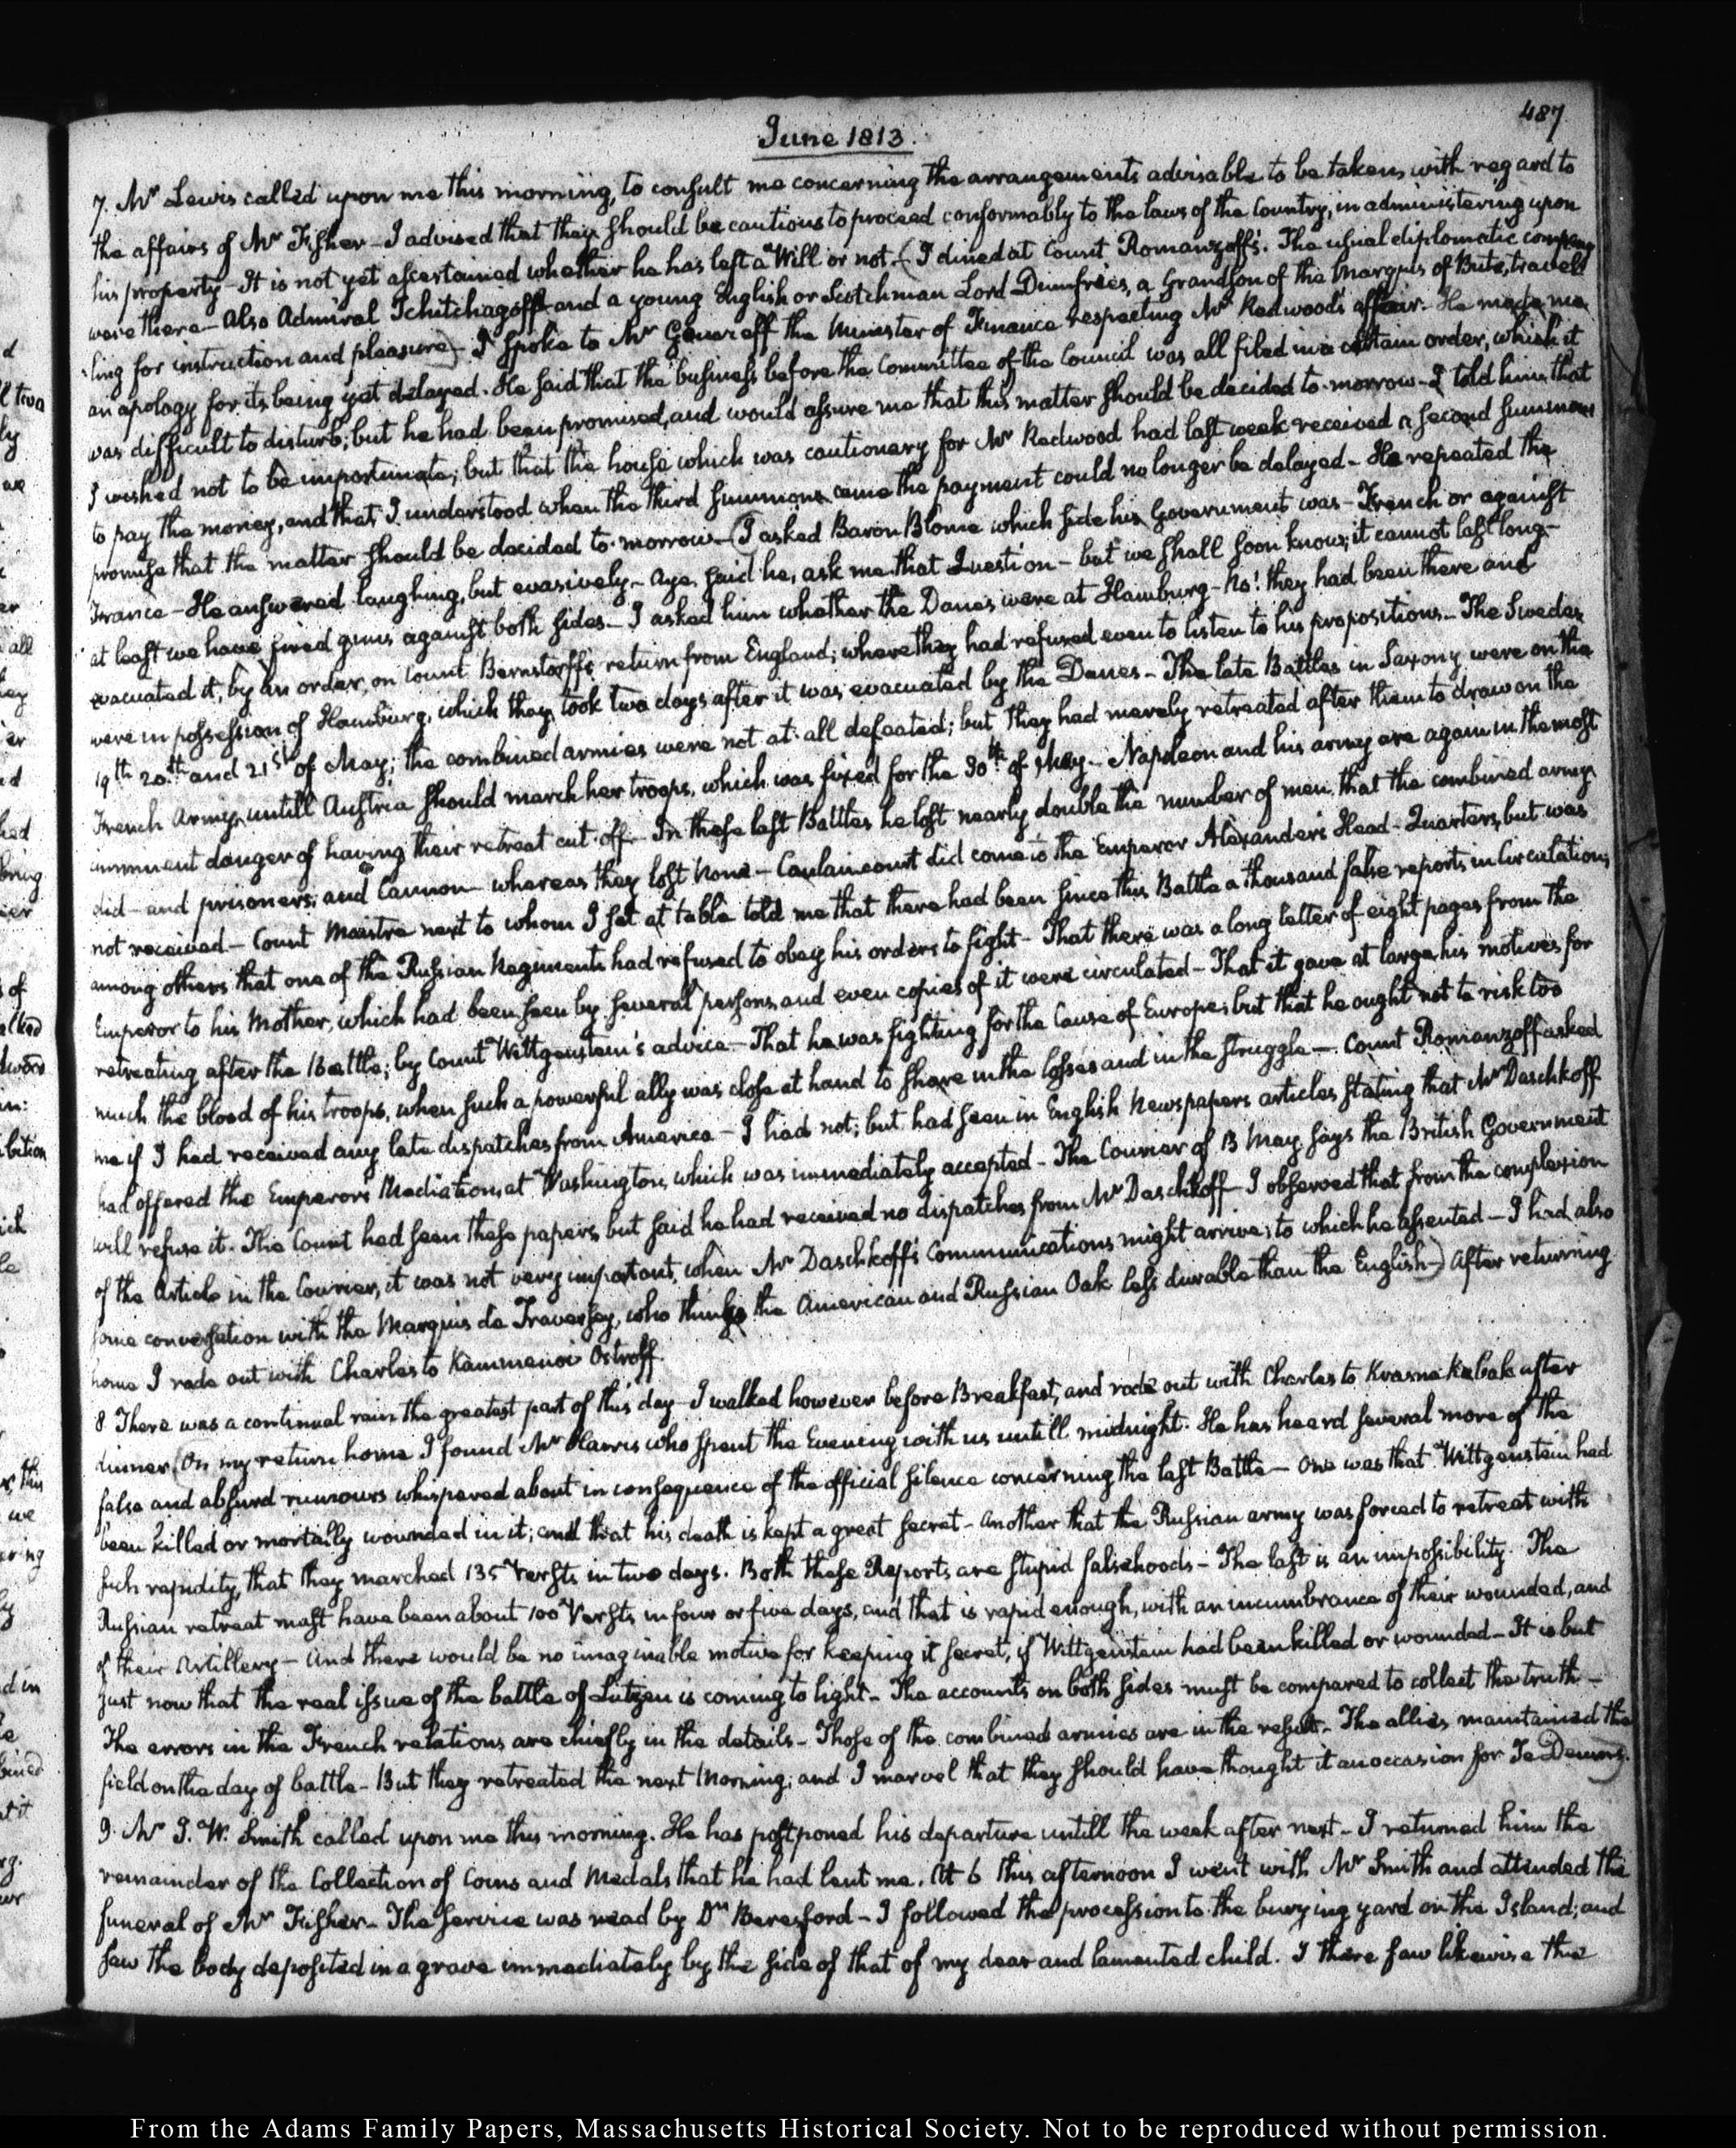 487
June 1813.
7. Mr Lewis called upon me this morning, to consult me concerning the arrangements advisable to be taken with regard to
the affairs of Mr Fisher — I advised that they should be cautious to proceed conformably to the laws of the Country, in administering upon
his property — It is not yet ascertained whether he has left a Will or not. (I dined at Count Romanzoff's. The usual diplomatic company
were there — also Admiral Tchitchagoff and a young English or Scotchman Lord Dumfries, a Grandson of the Marquis of Bute, travell
ling for instruction and pleasure) — I spoke to Mr Gourieff the Minister of Finance respecting Mr Redwood's affair. He made me
an apology for its being yet delayed. He said that the business before the Committee of the Council was all filed in a certain order, which it
was difficult to disturb; but he had been promised, and would assure me that this matter should be decided to-morrow — I told him that
I wished not to be importunate; but that the house which was cautionary for Mr Redwood had last week received a second summons
to pay the money, and that I understood when the third summons came the payment could no longer be delayed — He repeated the
promise that the matter should be decided to-morrow — (I asked Baron Blome which side his Government was — French or against
France — He answered laughing, but evasively — Aye, said he, ask me that Question — but we shall soon know; it cannot last long —
at least we have fired guns against both sides — I asked him whether the Danes were at Hamburg — No! they had been there and
evacuated it, by an order, on Count Bernstorff's return from England; where they had refused even to listen to his propositions — The Swedes
were in possession of Hamburg, which they took two days after it was evacuated by the Danes — The late Battles in Saxony were on the
19th 20th and 21st of May; the combined armies were not at all defeated; but they had merely retreated after them to draw on the
French Army, untill Austria should march her troops, which was fixed for the 30th of May — Napoleon and his army are again in the most
imminent danger of having their retreat cut off — In these last Battles he lost nearly double the number of men that the combined army
did — and prisoners, and Cannon — whereas they lost None — Caulaincourt did come to the Emperor Alexander's Head-Quarters, but was
not received — Count Maistre next to whom I sat at table told me that there had been since this Battle a thousand false reports in Circulation,
among others that one of the Russian Regiments had refused to obey his orders to fight — That there was a long letter of eight pages from the
Emperor to his Mother, which had been seen by several persons, and even copies of it were circulated — That it gave at large his motives for
retreating after the Battle; by Count Wittgenstein's advice — That he was fighting for the Cause of Europe; but that he ought not to risk too
much the blood of his troops, when such a powerful ally was close at hand to share in the losses and in the struggle — Count Romanzoff asked
me if I had received any late dispatches from America — I had not; but had seen in English Newspapers articles stating that Mr Daschkoff
had offered the Emperor's Mediation, at Washington, which was immediately accepted — The Courier of 13 May, says the British Government
will refuse it. The Count had seen these papers, but said he had received no dispatches from Mr Daschkoff — I observed that from the complexion
of the Article in the Courier, it was not very important, when Mr Daschkoff's Communications might arrive; to which he assented — I had also
some conversation with the Marquis de Traversay, who thinks the American and Russian Oak less durable than the English —) After returning
home I rode out with Charles to Kammenoi Ostroff.
8. There was a continual rain the greatest part of this day — I walked however before Breakfast, and rode out with Charles to Krasna Kabak after
dinner (On my return home I found Mr Harris who spent the Evening with us untill midnight. He has heard several more of the
false and absurd rumours whispered about in consequence of the official silence concerning the last Battle — One was that Wittgenstein had
been killed or mortally wounded in it; and that his death is kept a great secret — Another that the Russian army was forced to retreat with
such rapidity, that they marched 135 Versts in two days. Both these Reports are stupid falsehoods — The last is an impossibility. The
Russian retreat must have been about 100 Versts in four or five days, and that is rapid enough, with an incumbrance of their wounded, and
of their Artillery — And there would be no imaginable motive for keeping it secret, if Wittgenstein had been killed or wounded — It is but
just now that the real issue of the battle of Lutzen is coming to light — The accounts on both sides must be compared to collect the truth —
The errors in the French relations are chiefly in the details — Those of the combined armies are in the result — The allies maintained the
field on the day of battle — But they retreated the next Morning; and I marvel that they should have thought it an occasion for Te Deums.)
9. Mr J. W. Smith called upon me this morning. He has postponed his departure untill the week after next — I returned him the
remainder of the Collection of Coins and Medals that he had lent me. At 6 this afternoon I went with Mr Smith and attended the
funeral of Mr Fisher — The service was read by Dr Beresford — I followed the procession to the burying yard on the Island; and
saw the body deposited in a grave immediately by the side of that of my dear and lamented child. I there saw likewise the
From the Adams Family Papers, Massachusetts Historical Society. Not to be reproduced without permission.